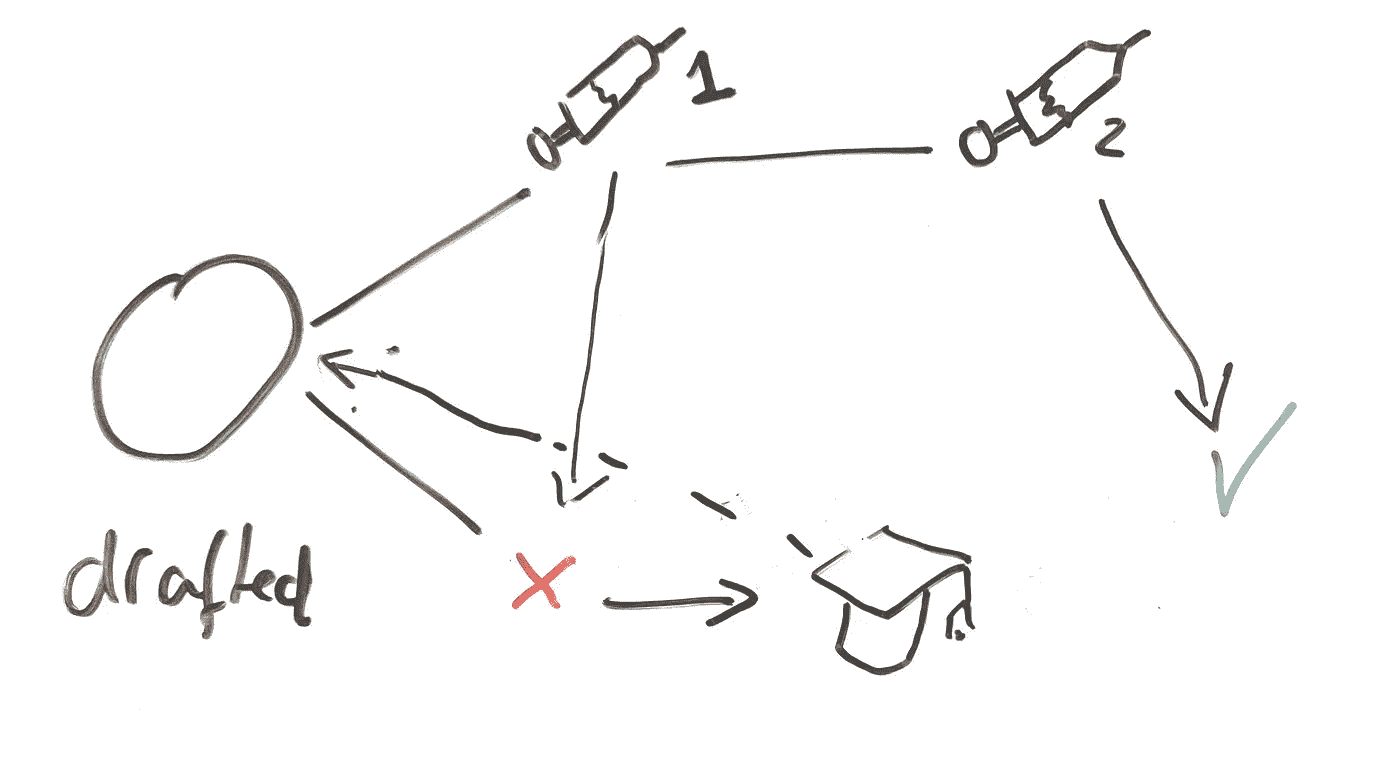 1
2
drafted